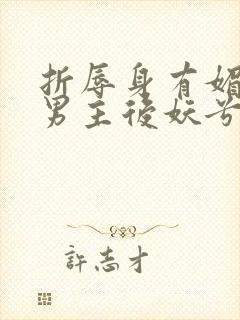 折辱身有媚
男主後妖兮
許志才